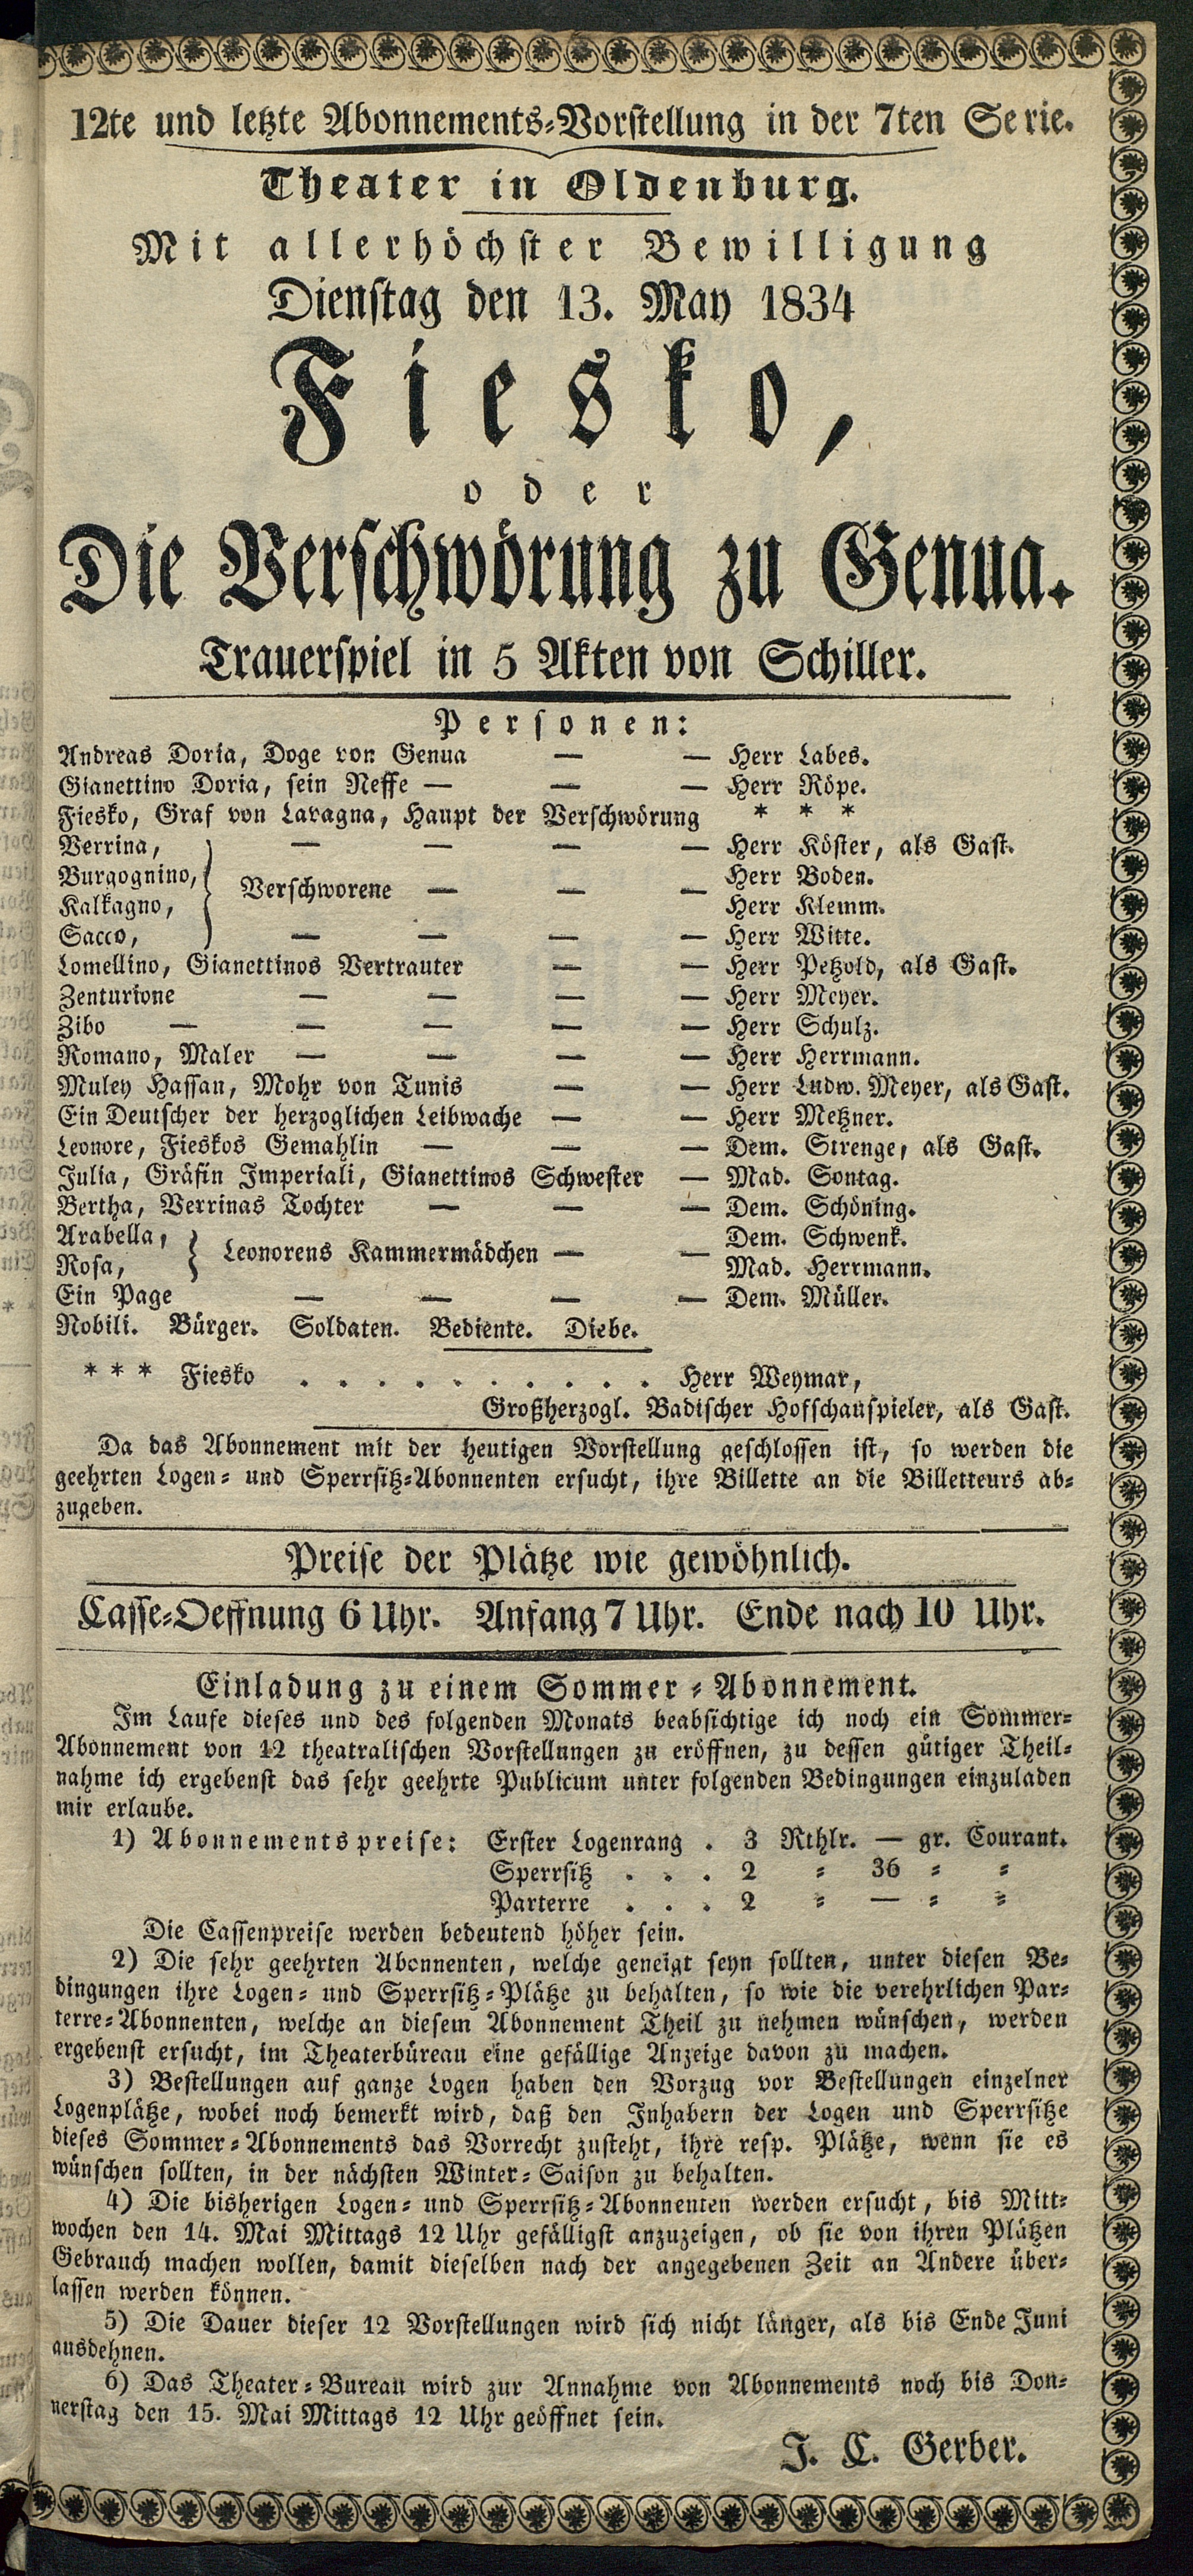 12te und letzte Abonnements-Vorstellung in der 7ten Serie.
Theater in Oldenburg.
Mit allerhöchster Bewilligung
Dienstag den 13. May 1834
Fiesko,
oder
Die Verschwörung zu Genua.
Trauerspiel in 5 Akten von Schiller.
Personen:
Andreas Doria, Doge von Genua — — Herr Labes.
Gianettino Doria, sein Neffe — — — Herr Röpe.
Fiesko, Graf von Lavagna, Haupt der Verschwörung * * *
Verrina, — — — — Herr Köster, als Gast.
Burgognino, Herr Boden.
Verschworene — — —
Kalkagno, Herr Klemm.
Sacco, — — — — Herr Witte.
Lomellino, Gianettinos Vertrauter — — Herr Petzold, als Gast.
Zenturione — — — — Herr Meyer.
Zibo — — — — — Herr Schulz.
Romano, Maler — — — — Herr Herrmann.
Muley Hassan, Mohr von Tunis — — Herr Ludw. Meyer, als Gast.
Ein Deutscher der herzoglichen Leibwache — — Herr Metzner.
Leonore, Fieskos Gemahlin — — — Dem. Strenge, als Gast.
Julia, Gräfin Imperiali, Gianettinos Schwester — Mad. Sontag.
Bertha, Verrinas Tochter — — — Dem. Schöning.
Arabella, Dem. Schwenk.
Leonorens Kammermädchen — —
Rosa, Mad. Herrmann.
Ein Page — — — — Dem. Müller.
Nobili. Bürger. Soldaten. Bediente. Diebe.
* * * Fiesko . . . . . . . . . . Herr Weymar,
Großherzogl. Badischer Hofschauspieler, als Gast.
Da das Abonnement mit der heutigen Vorstellung geschlossen ist, so werden die
geehrten Logen- und Sperrsitz-Abonnenten ersucht, ihre Billette an die Billetteurs ab-
zugeben.
Preise der Plätze wie gewöhnlich.
Casse-Oeffnung 6 Uhr. Anfang 7 Uhr. Ende nach 10 Uhr.
Einladung zu einem Sommer-Abonnement.
Im Laufe dieses und des folgenden Monats beabsichtige ich noch ein Sommer-
Abonnement von 12 theatralischen Vorstellungen zu eröffnen, zu dessen gütiger Theil-
nahme ich ergebenst das sehr geehrte Publicum unter folgenden Bedingungen einzuladen
mir erlaube.
1) Abonnementspreise: Erster Logenrang . 3 Rthlr. — gr. Courant.
Sperrsitz . . . 2 = 36 = =
Parterre . . . 2 = — = =
Die Cassenpreise werden bedeutend höher sein.
2) Die sehr geehrten Abonnenten, welche geneigt seyn sollten, unter diesen Be-
dingungen ihre Logen- und Sperrsitz-Plätze zu behalten, so wie die verehrlichen Par-
terre-Abonnenten, welche an diesem Abonnement Theil zu nehmen wünschen, werden
ergebenst ersucht, im Theaterbüreau eine gefällige Anzeige davon zu machen.
3) Bestellungen auf ganze Logen haben den Vorzug vor Bestellungen einzelner
Logenplätze, wobei noch bemerkt wird, daß den Inhabern der Logen und Sperrsitze
dieses Sommer-Abonnements das Vorrecht zusteht, ihre resp. Plätze, wenn sie es
wünschen sollten, in der nächsten Winter-Saison zu behalten.
4) Die bisherigen Logen- und Sperrsitz-Abonnenten werden ersucht, bis Mitt-
wochen den 14. Mai Mittags 12 Uhr gefälligst anzuzeigen, ob sie von ihren Plätzen
Gebrauch machen wollen, damit dieselben nach der angegebenen Zeit an Andere über-
lassen werden können.
5) Die Dauer dieser 12 Vorstellungen wird sich nicht länger, als bis Ende Juni
ausdehnen.
6) Das Theater-Bureau wird zur Annahme von Abonnements noch bis Don-
nerstag den 15. Mai Mittags 12 Uhr geöffnet sein.
J. C. Gerber.